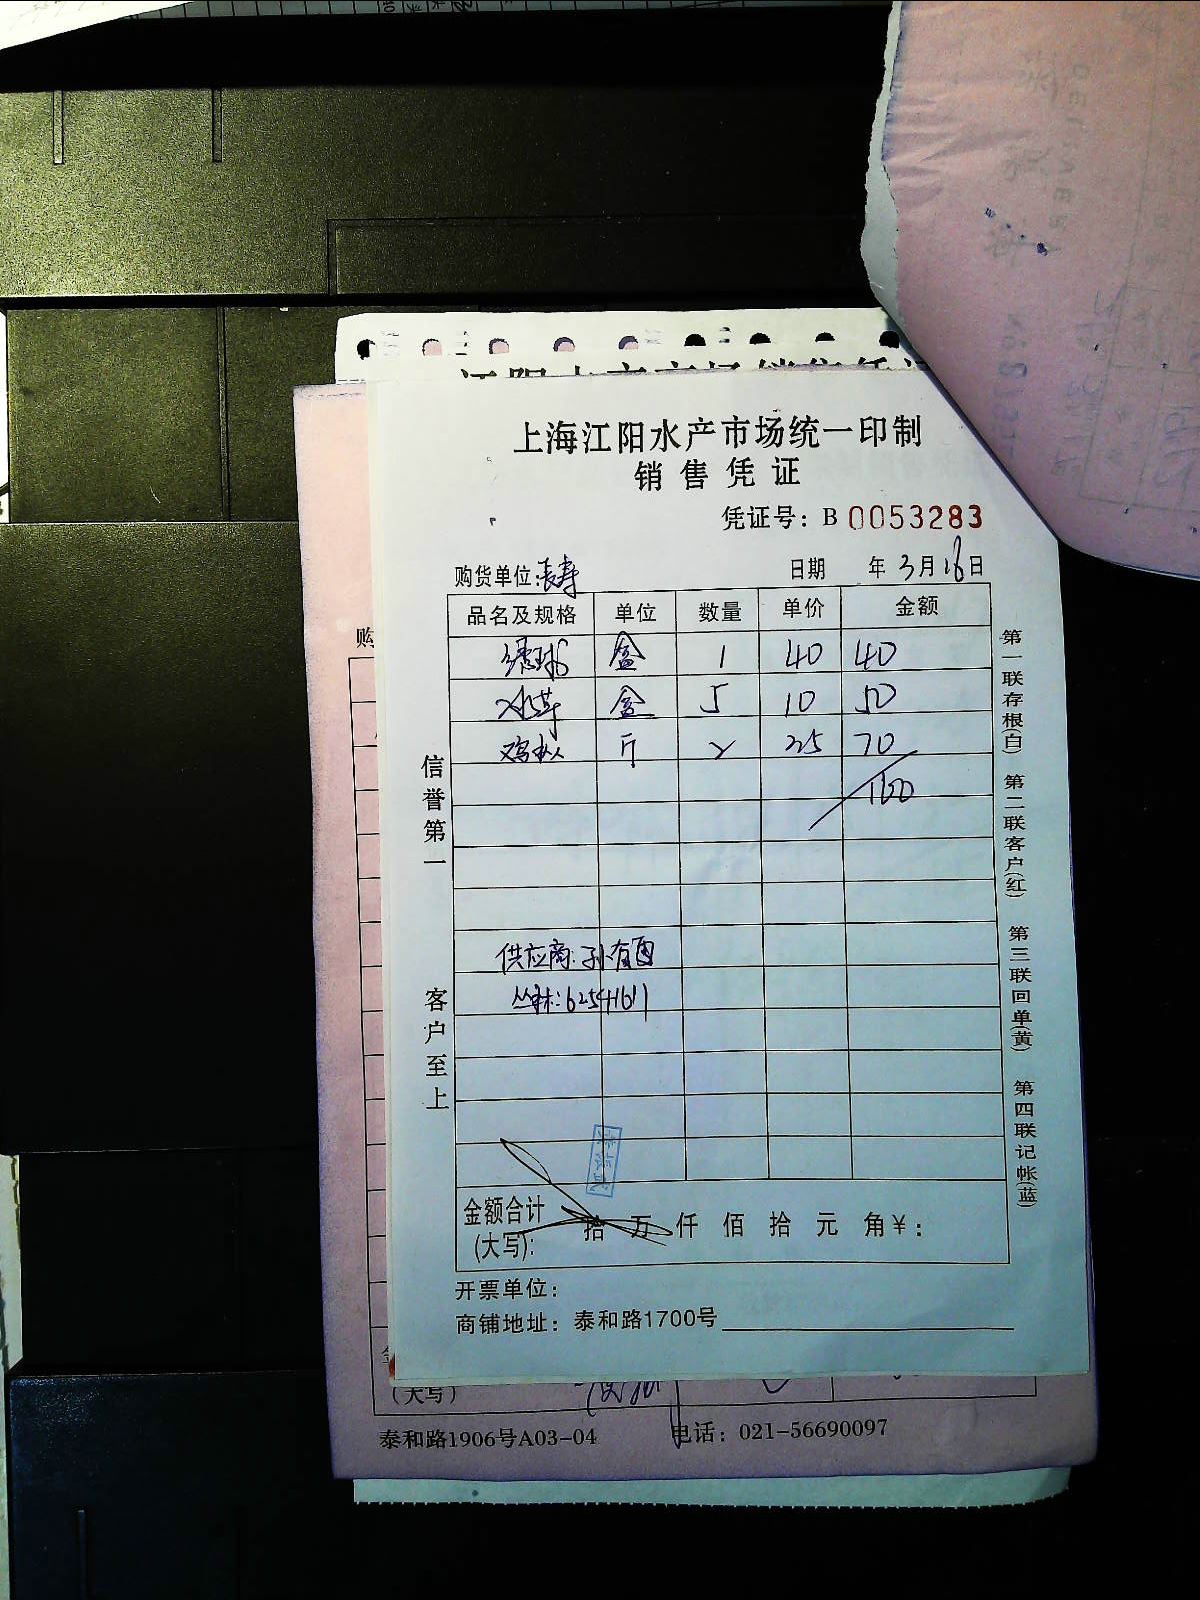 上海江阳水产市场统一印制
销售凭证
凭证号: B 0053283
购货单位: 表寿 日期 年 3月16日
品名及规格 单位 数量 单价 金额
盒 1 40 40
盒 5 10 50
斤 2 35 70
160
信誉第一
客户至上
供应商: 孙有国
62541611
金额合计
(大写): 拾 万 仟 佰 拾 元 角 ¥:
开票单位:
商铺地址: 泰和路1700号
第一联存根(白) 第二联客户(红) 第三联回单(黄) 第四联记帐(蓝)
购
(大写)
泰和路1906号A03-04 电话: 021-56690097